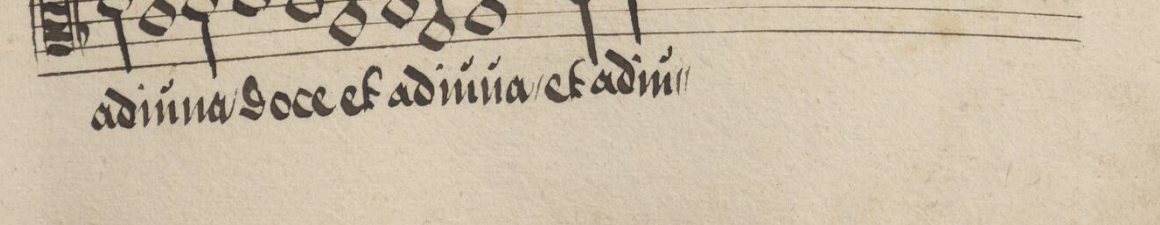 adiuua doce et adiuua et adiu